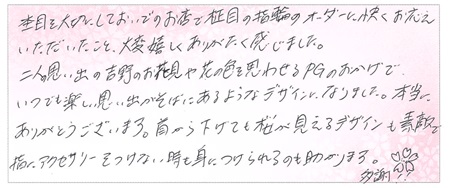 杢目を大切にしておいでのお店で柾目の指輪のオーダーに快くお応え
いただいたこと、大変嬉しくありがたく感じました。
二人の思い出の吉野のお花見や花の色を思わせるPGのおかげで
いつでも楽しい思い出がそばにあるようなデザインになりました。本当に
ありがとうございます。首から下げても桜が見えるデザインも素敵で
指にアクセサリーをつけない時も身につけられるのも助かります。
多謝!!